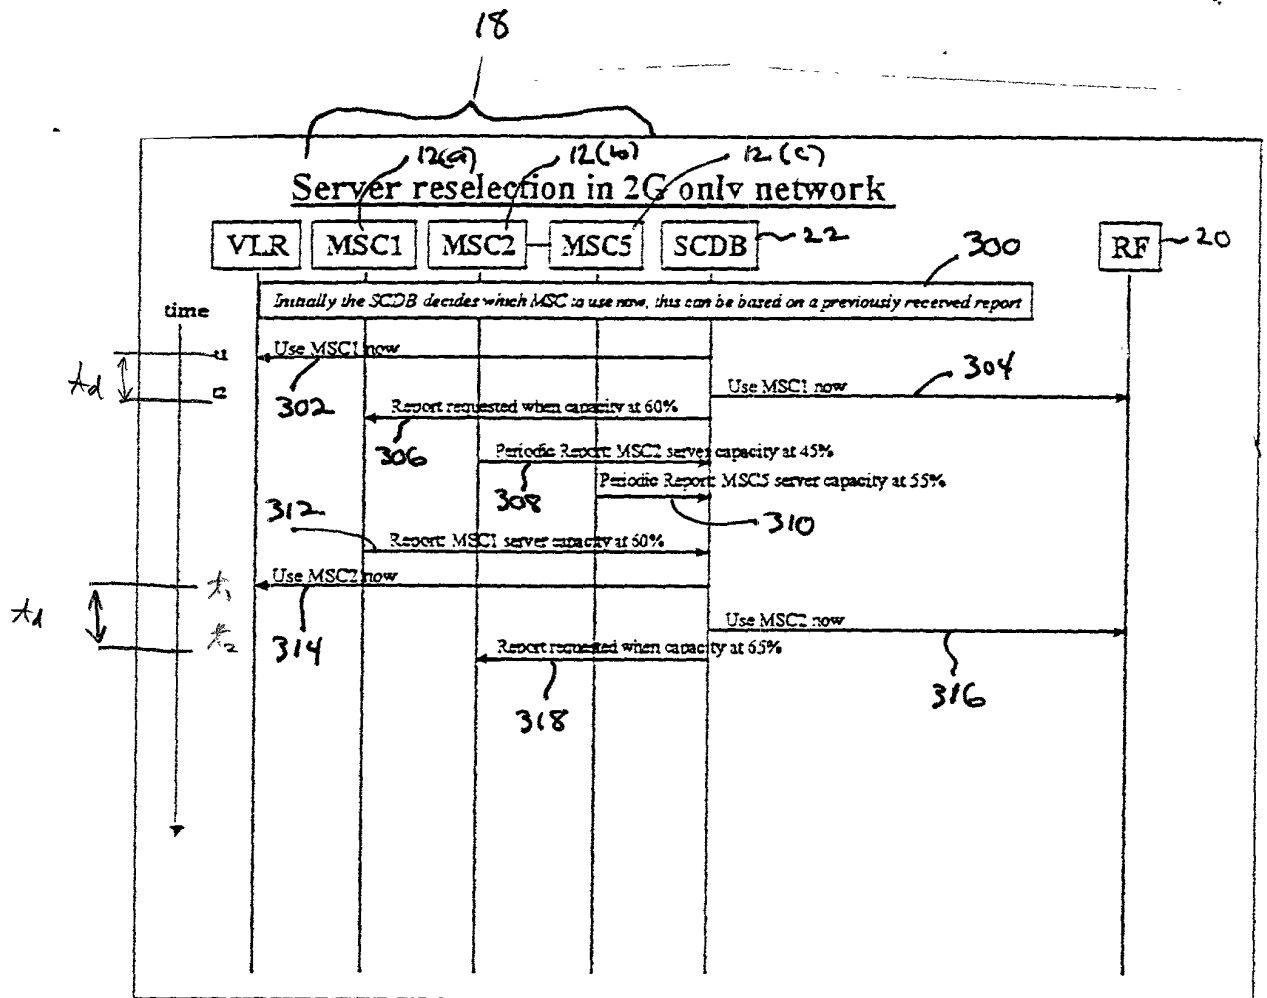 18
12(a) 12(b) 12(c)
Server reselection in 2G only network
VLR MSC1 MSC2 MSC5 SCDB 22 RF 20
300
Initially the SCDB decides which MSC to use now, this can be based on a previously received report
time
t1 Use MSC1 now
td
302
t2 Use MSC1 now 304
Report requested when capacity at 60%
306
Periodic Report: MSC2 server capacity at 45%
308
Periodic Report: MSC5 server capacity at 55%
310
312
Report: MSC1 server capacity at 60%
t1 Use MSC2 now
td
314
t2 Use MSC2 now
316
Report requested when capacity at 65%
318